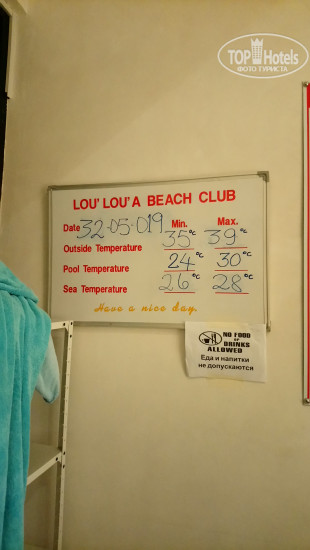 TOP Hotels
ФОТО ТУРИСТА
LOU' LOU'A BEACH CLUB
Date 32.05.019 Min. Max.
Outside Temperature 35°C 39°C
Pool Temperature 24°C 30°C
Sea Temperature 26°C 28°C
Have a nice day.
NO FOOD
or
DRINKS
ALLOWED
Еда и напитки
не допускаются